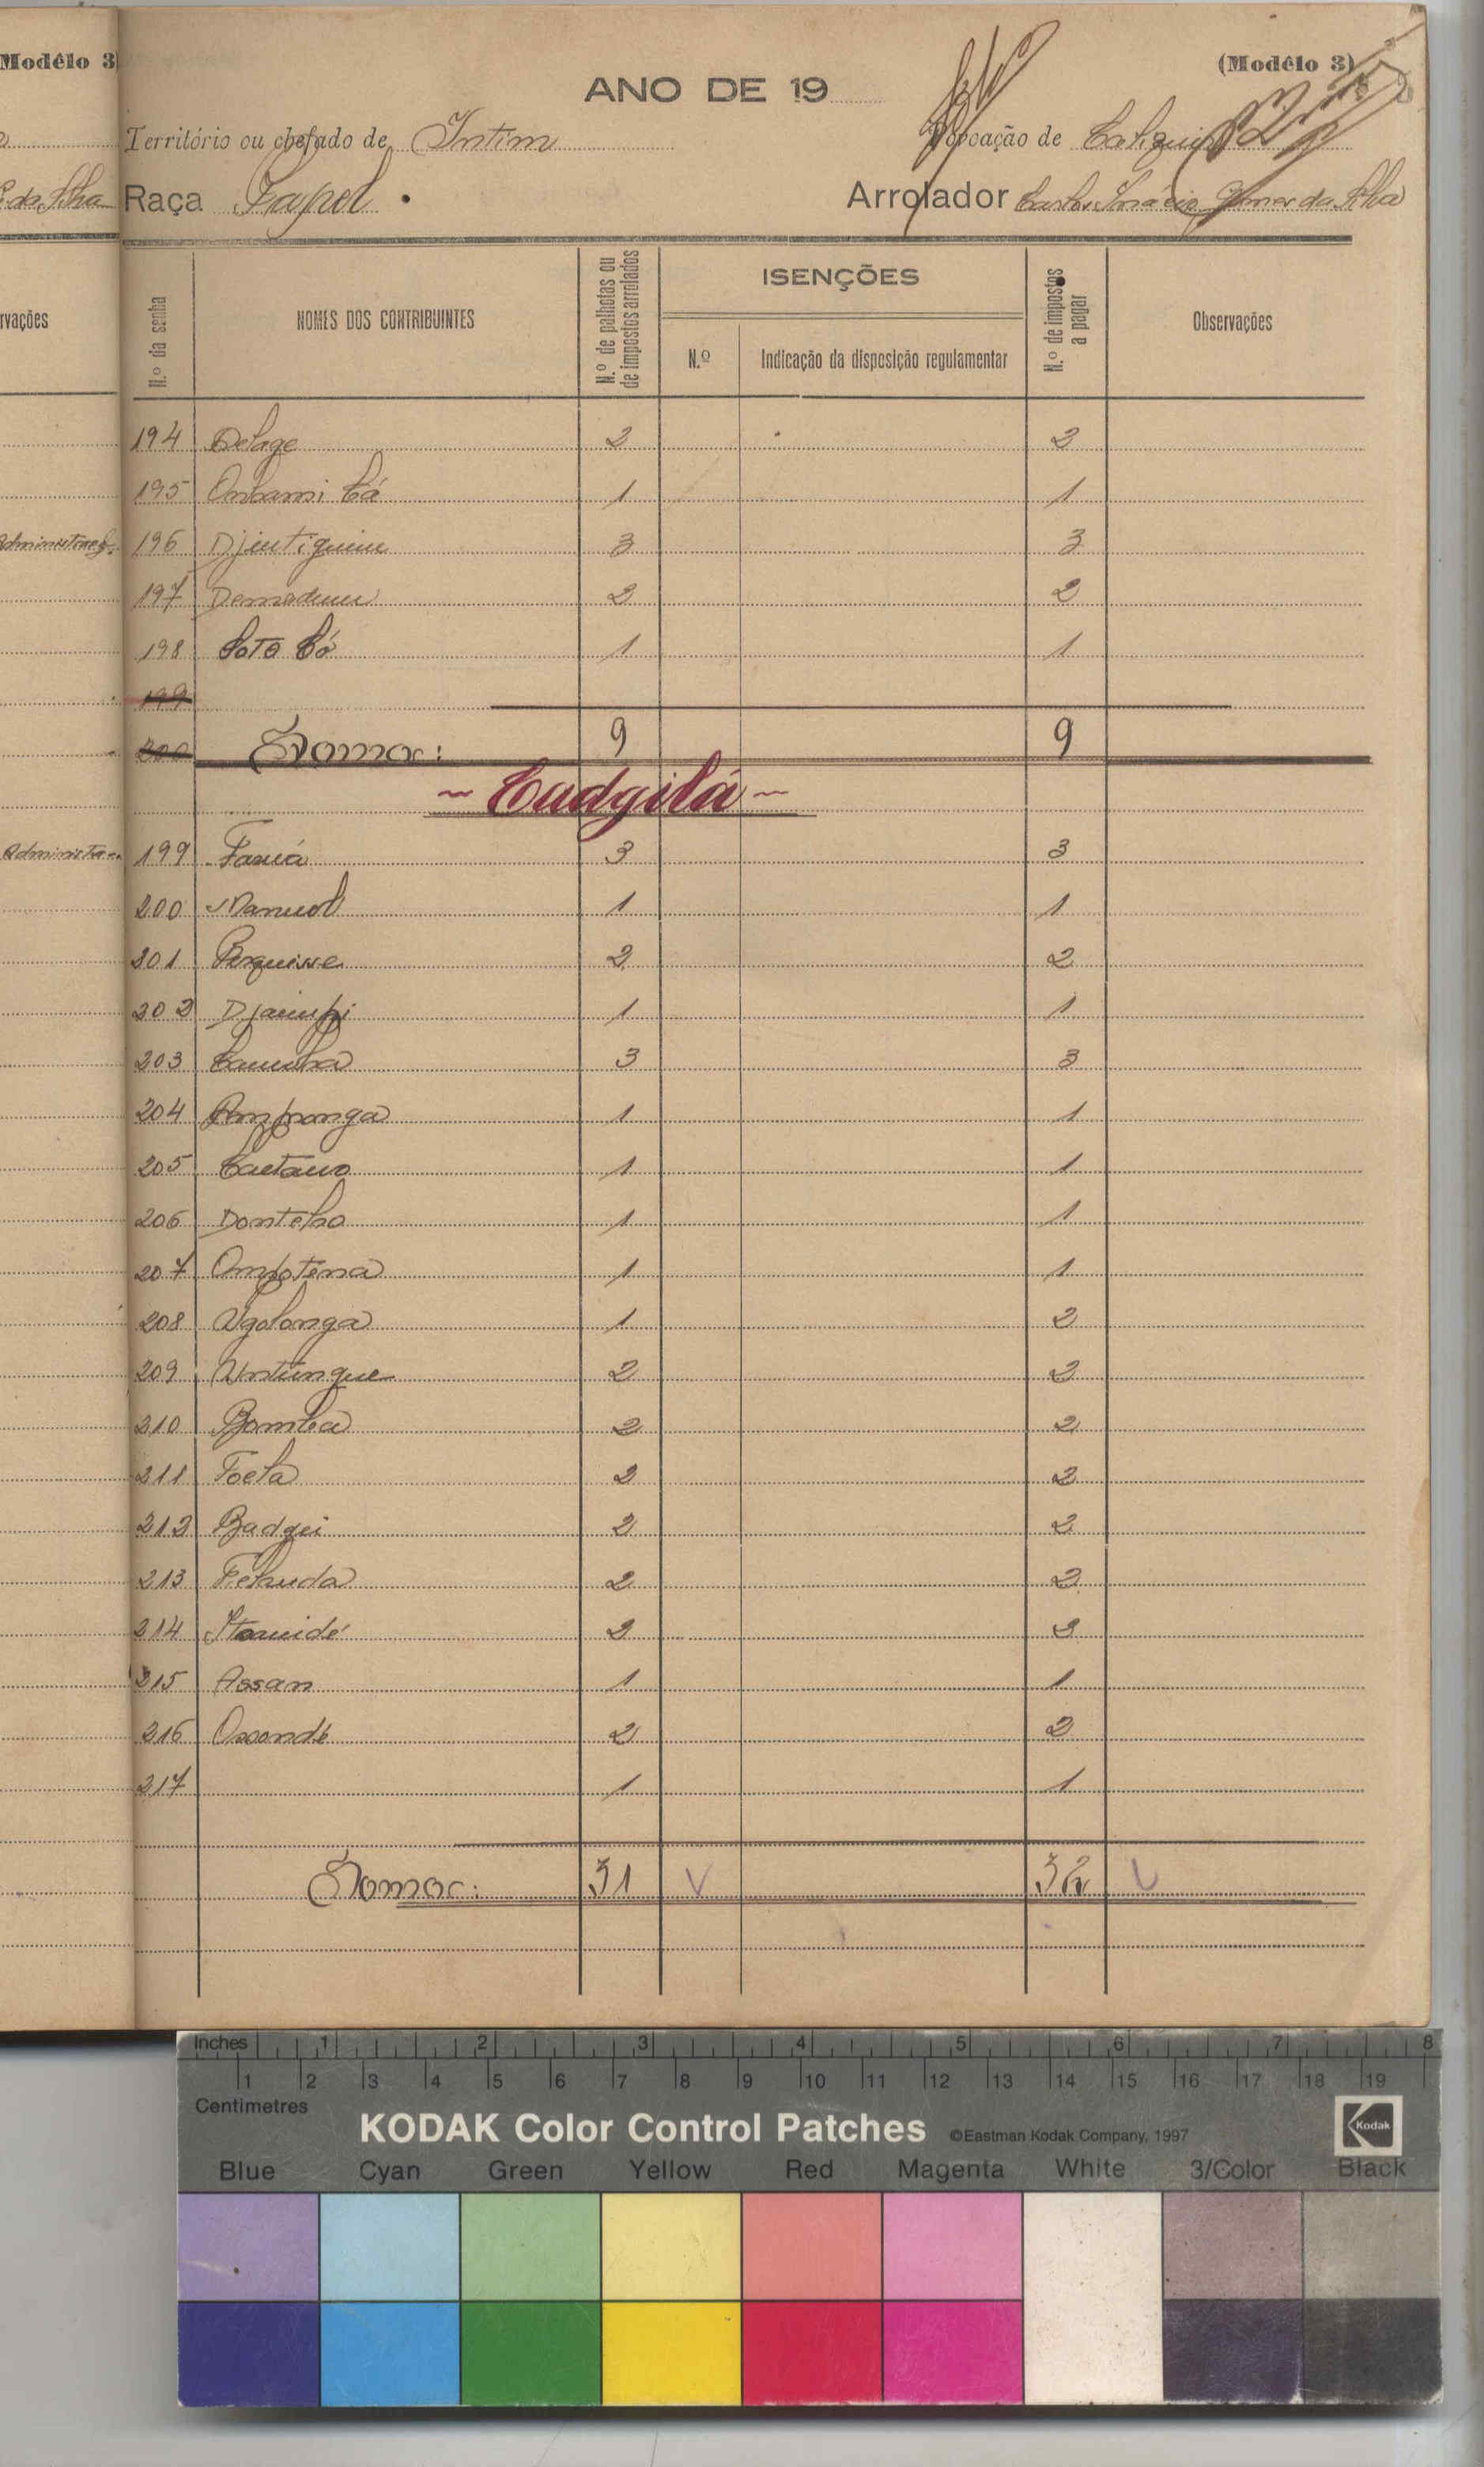 Modêlo 3)
(Modêlo 3)
ANO DE 19
Território ou chefado de Intim
Povoação de
da Silva
Raça Papel
Arrolador Carlos Inácio Gomes da Silva
rvações
N.º da senha
NOMES DOS CONTRIBUINTES
N.º de palhotas ou de impostos arrolados
ISENÇÕES
N.º
Indicação da disposição regulamentar
N.º de impostos a pagar
Observações
194 Delage 2 2
195 Onbami Cá 1 1
196 Djintiquim 3 3
197 2 2
198 Soto Có 1 1
199
200 Somar: 9 9
~ Cudgilá ~
199 Faniá 3 3
200 Manuel 1 1
201 Perquisse 2 2
202 1 1
203 3 3
204 Ampanga 1 1
205 Caetano 1 1
206 Dontelo 1 1
207 Ompotena 1 1
208 Ugolonga 1 2
209 Untungue 2 2
210 Bomba 2 2
211 Foela 2 2
212 Badgi 2 2
213 2 2
214 2 2
215 Assan 1 1
216 Ocondé 2 2
217 1 1
Somar: 31 32
Inches 1 2 3 4 5 6 7 8
1 2 3 4 5 6 7 8 9 10 11 12 13 14 15 16 17 18 19
Centimetres
KODAK Color Control Patches ©Eastman Kodak Company, 1997 Kodak
Blue Cyan Green Yellow Red Magenta White 3/Color Black